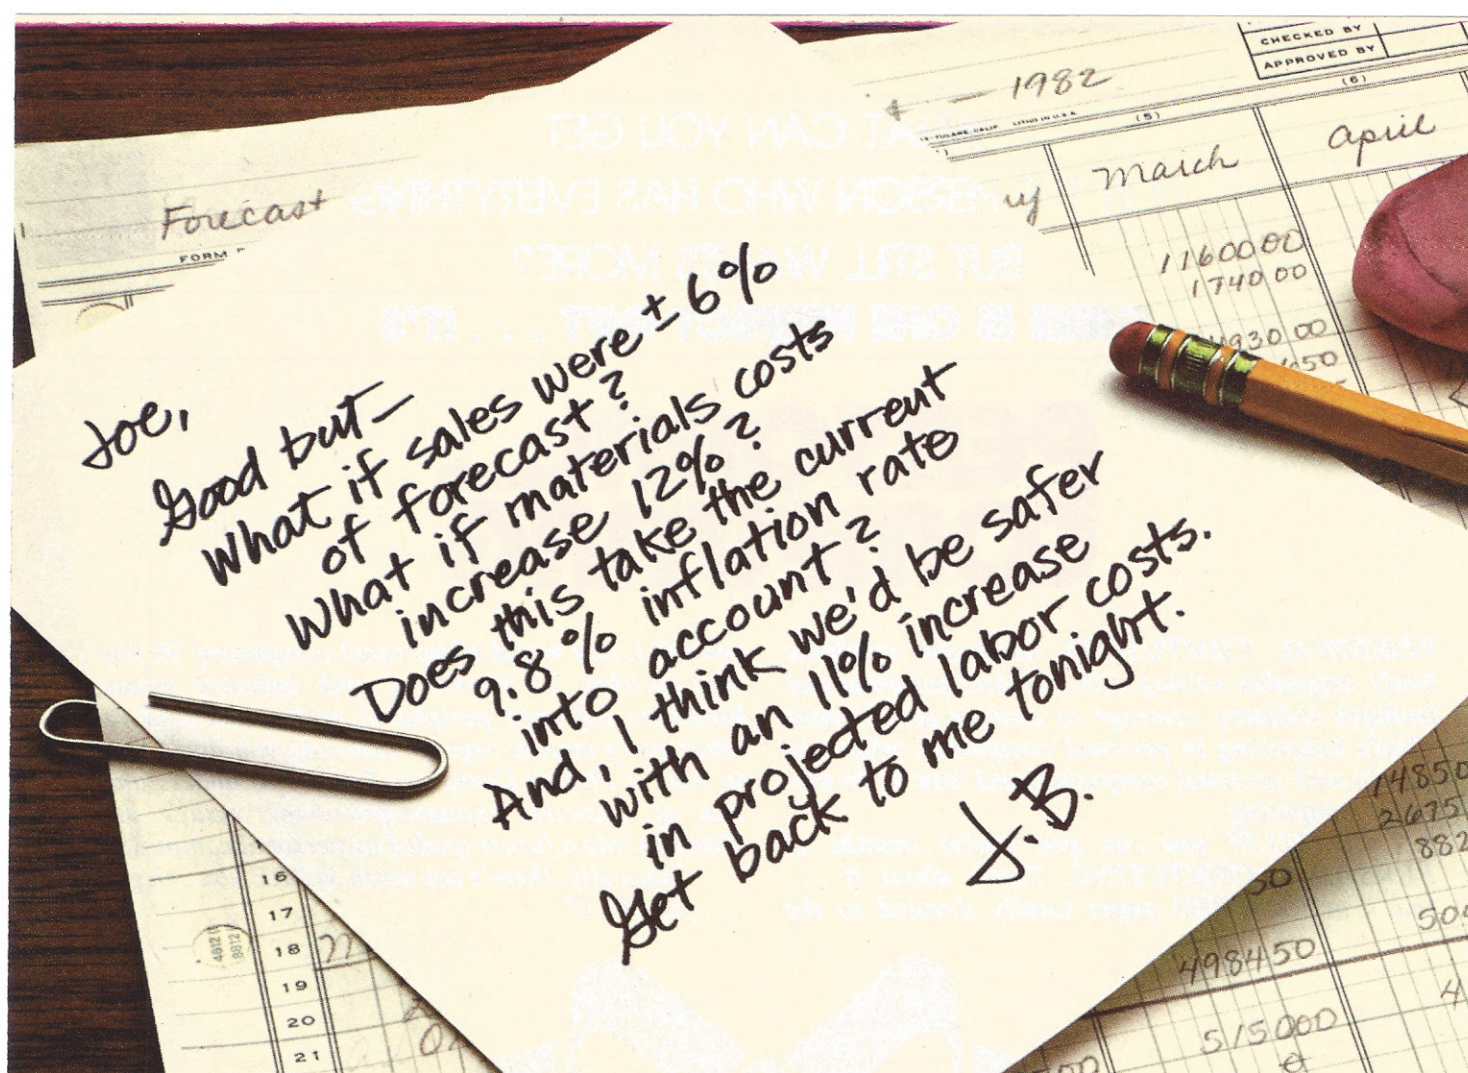 CHECKED BY
APPROVED BY
1982
(5)
(6)
March
April
Forecast
FORM
1160000
174000
93000
Joe,
Good but—
What if sales were ± 6%
of forecast?
What if materials costs
increase 12%?
Does this take the current
9.8% inflation rate
into account?
And, I think we'd be safer
with an 11% increase
in projected labor costs.
Get back to me tonight.
J.B.
16
17
18
19
20
21
14850
2675
882
500
498450
515000